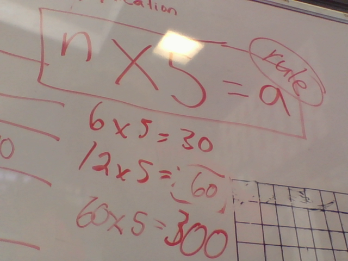 ication
n x 5 = a
rule
6 x 5 = 30
12 x 5 = 60
60 x 5 = 300
0